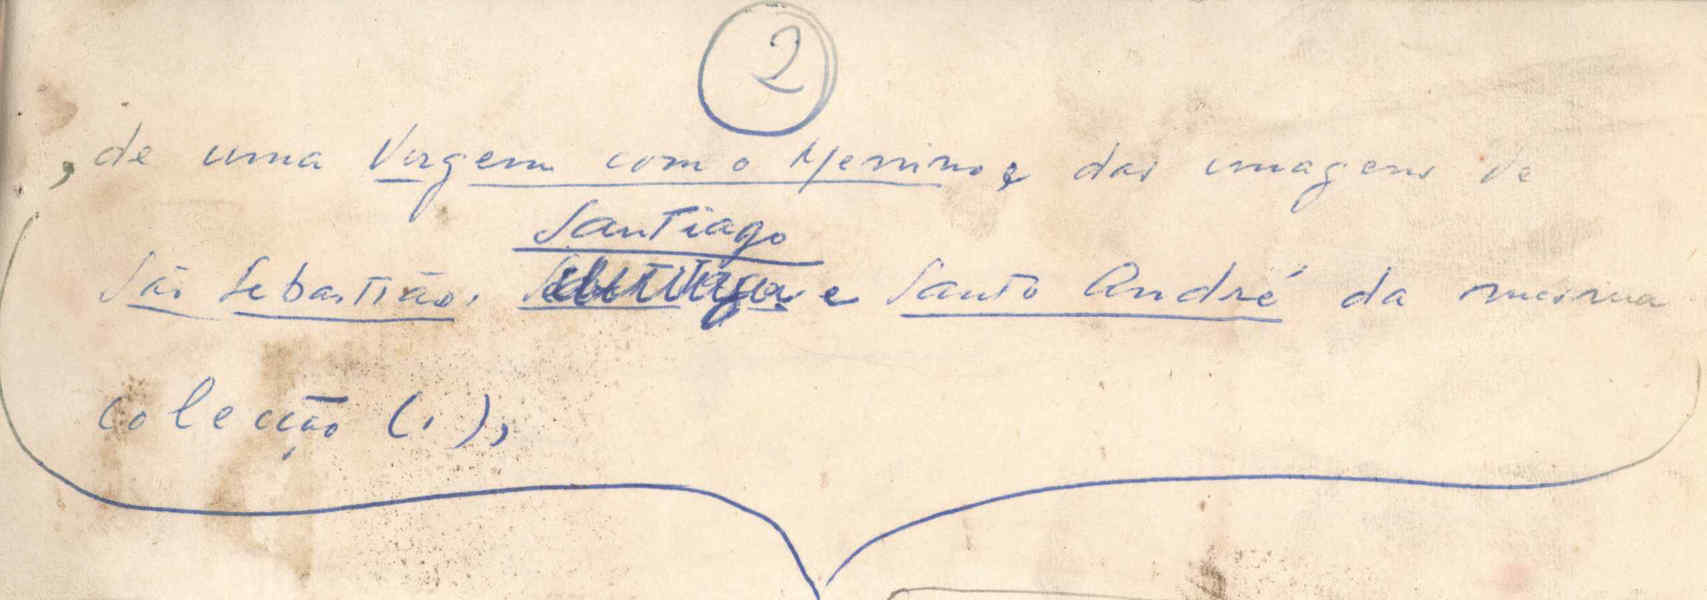 2
, de uma Virgem com o Menino, e das imagens de
Santiago
São Sebastião, e Santo André da mesma
colecção (1),